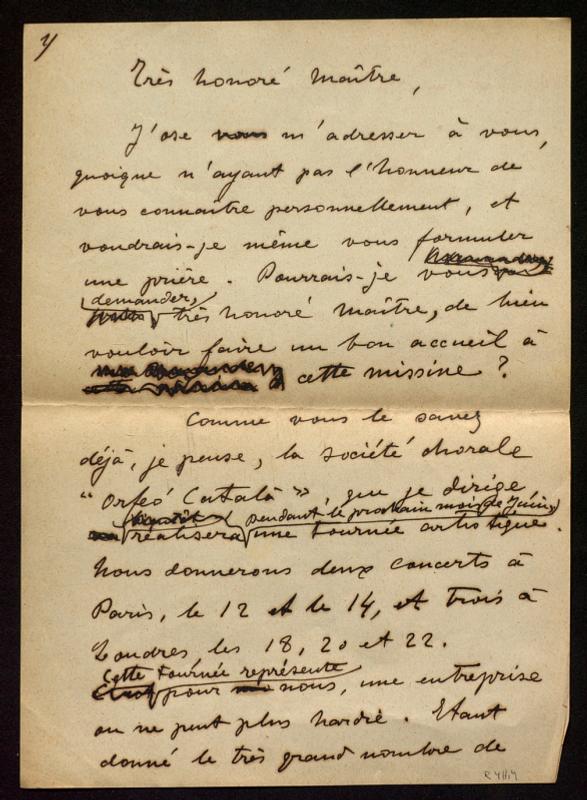 Très honoré Maître,
J'ose m'adresser à vous,
quoique n'ayant pas l'honneur de
vous connaître personnellement, et
voudrais-je même vous formuler
une prière. Pourrais-je vous
demander,
très honoré Maître, de bien
vouloir faire un bon accueil à
cette missine ?
Comme vous le savez
déjà, je pense, la société chorale
"Orfeó Català", que je dirige
pendant le prochain mois de Juin,
réalisera une tournée artistique.
Nous donnerons deux concerts à
Paris, le 12 et le 14, et trois à
Londres les 18, 20 et 22.
Cette tournée représente
pour nous, une entreprise
on ne peut plus hardie. Etant
donné le très grand nombre de